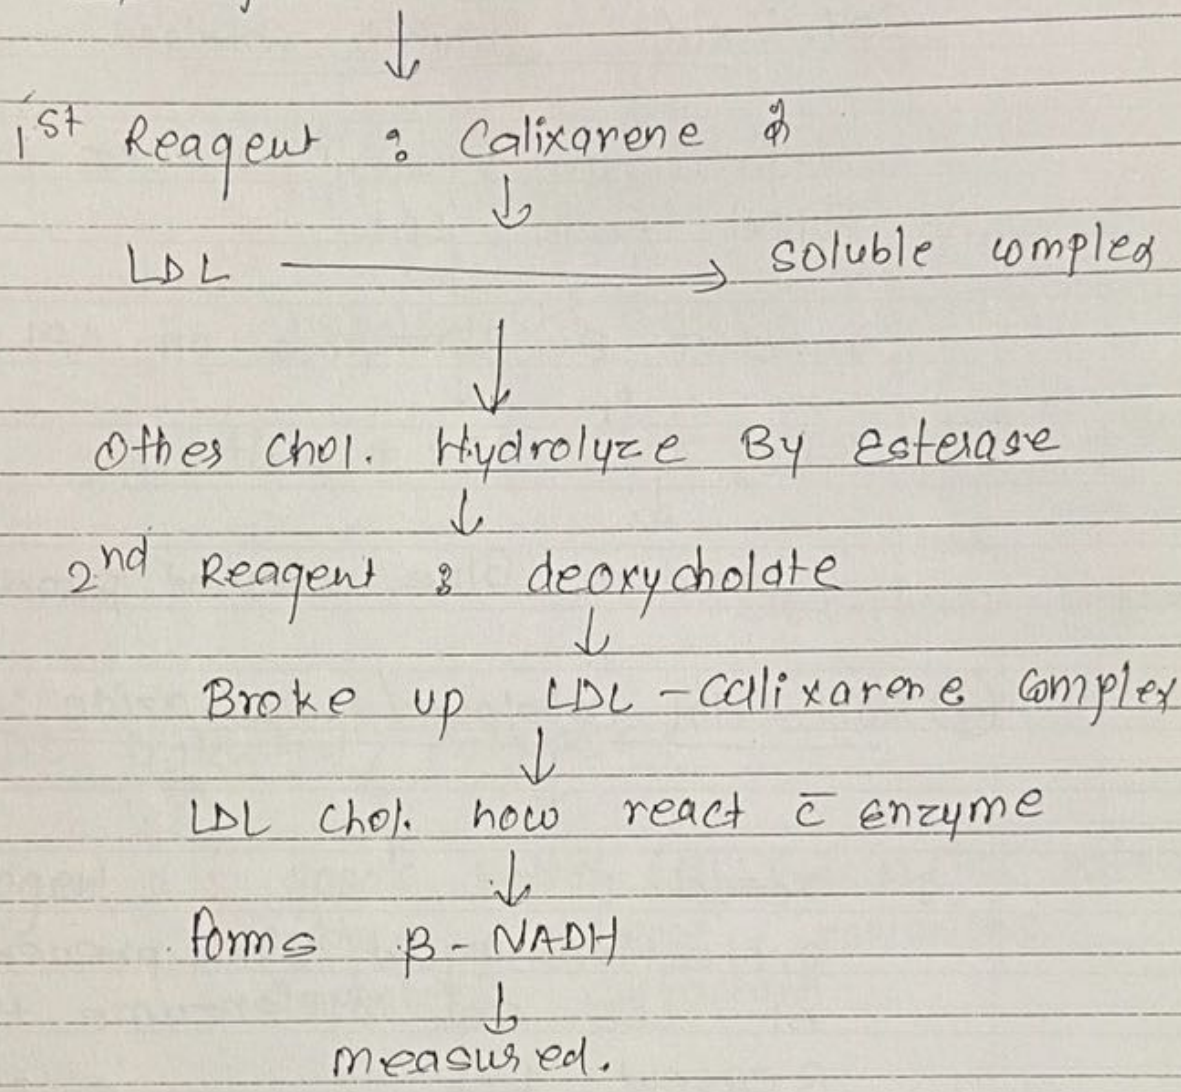 ↓
1st Reagent : Calixarene
↓
LDL → soluble complex
↓
Other Chol. Hydrolyze By Esterase
↓
2nd Reagent : deoxycholate
↓
Broke up LDL - Calixarene Complex
↓
LDL Chol. now react c̄ enzyme
↓
forms β - NADH
↓
measured.